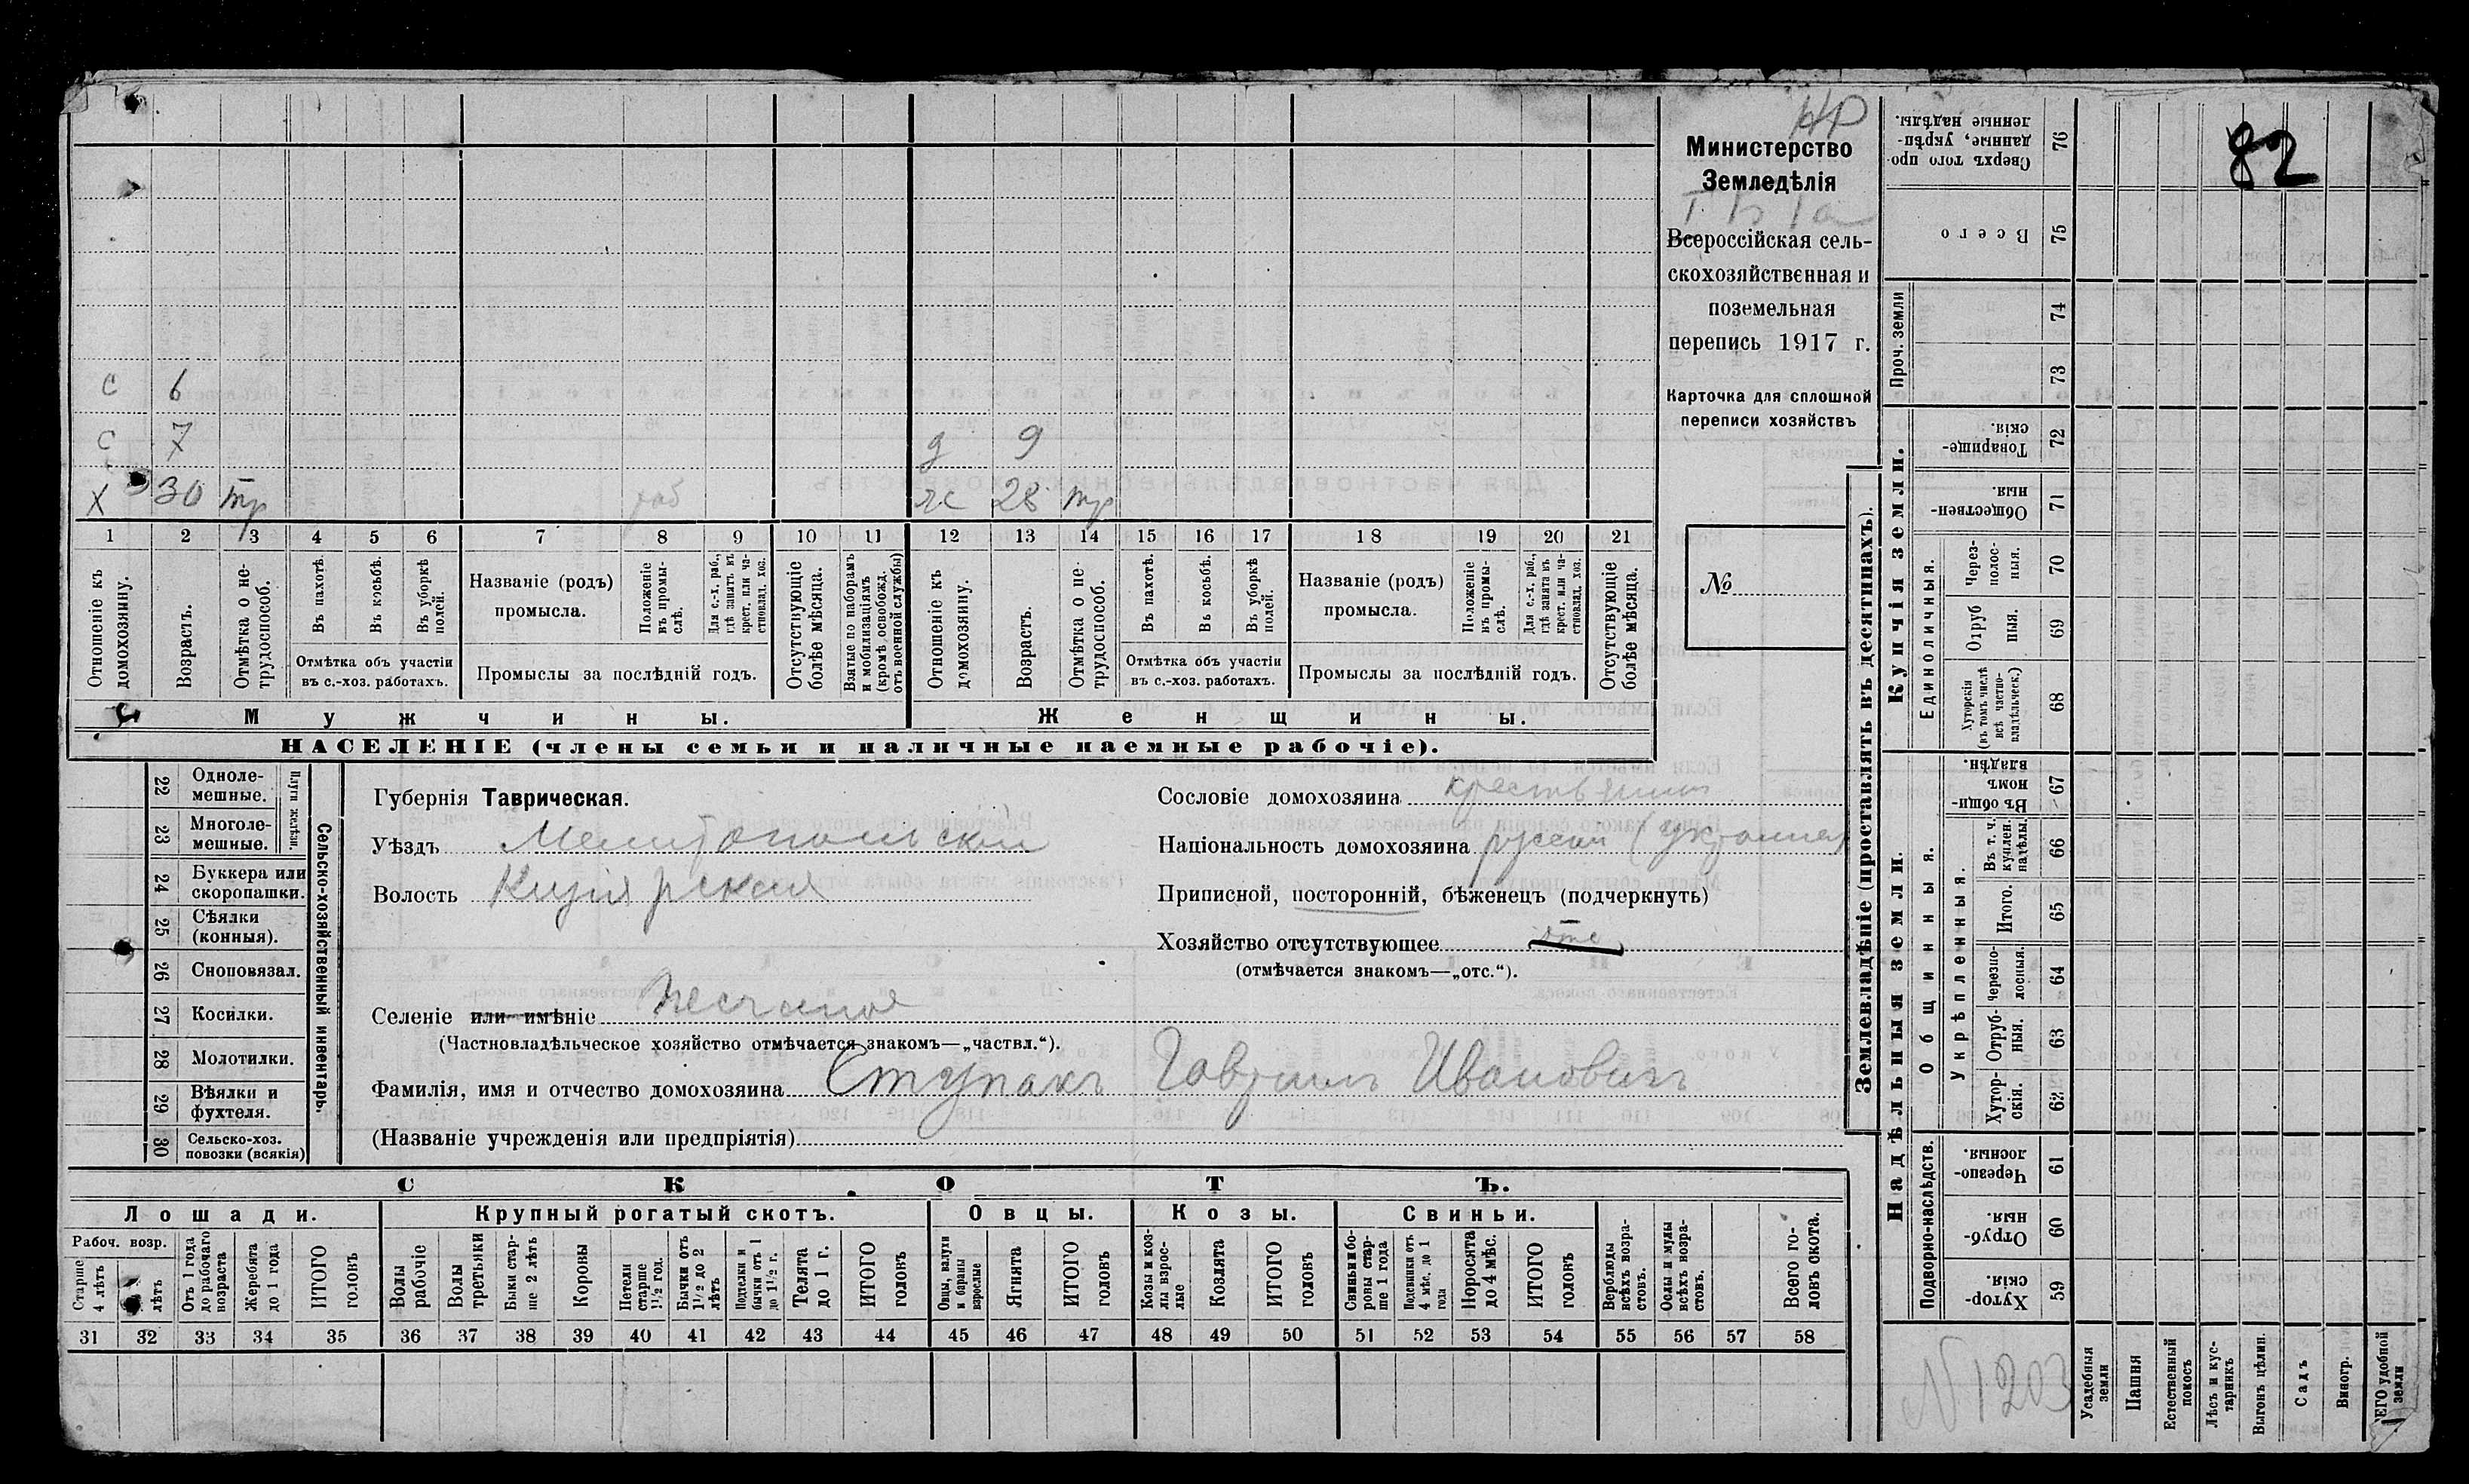 НР
82
Министерство
Земледѣлія
Всероссійская сель-
скохозяйственная и
поземельная
перепись 1917 г.
Карточка для сплошной
переписи хозяйствъ
№
с 6
с 7 д 9
х 30 тр раб ж 28 тр
1 2 3 4 5 6 7 8 9 10 11 12 13 14 15 16 17 18 19 20 21
Отношеніе къ домохозяину.
Возрастъ.
Отмѣтка о не-трудоспособ.
Въ пахотѣ.
Въ косьбѣ.
Въ уборкѣ полей.
Отмѣтка объ участіи
въ с.-хоз. работахъ.
Названіе (родъ)
промысла.
Положеніе въ промы-слѣ.
Для с.-х. раб., гдѣ занятъ въ крест. или ча-стновлад. хоз.
Промыслы за послѣдній годъ.
Отсутствующіе болѣе мѣсяца.
Взятые по наборамъ и мобилизаціямъ (кромѣ освобожд. отъ военной службы)
Отношеніе къ домохозяину.
Возрастъ.
Отмѣтка о не-трудоспособ.
Въ пахотѣ.
Въ косьбѣ.
Въ уборкѣ полей.
Отмѣтка объ участіи
въ с.-хоз. работахъ.
Названіе (родъ)
промысла.
Положеніе въ промы-слѣ.
Для с.-х. раб., гдѣ занята въ крест. или ча-стновлад. хоз.
Промыслы за послѣдній годъ.
Отсутствующіе болѣе мѣсяца.
Мужчины. Женщины.
НАСЕЛЕНІЕ (члены семьи и наличные наемные рабочіе).
Сельско-хозяйственный инвентарь.
Плуги желѣзн.
22 Одноле-мешные.
23 Многоле-мешные.
24 Буккера или скоропашки.
25 Сѣялки (конныя).
26 Сноповязал.
27 Косилки.
28 Молотилки.
29 Вѣялки и фухтеля.
30 Сельско-хоз. повозки (всякія)
Губернія Таврическая.
Уѣздъ Мелитопольскій
Волость Кизіярская
Сословіе домохозяина крестьянинъ
Національность домохозяина русскій (украинец)
Приписной, посторонній, бѣженецъ (подчеркнуть)
Хозяйство отсутствующее отс
(отмѣчается знакомъ—„отс.“).
Селеніе или имѣніе Песчаное
(Частновладѣльческое хозяйство отмѣчается знакомъ—„частвл.“).
Фамилія, имя и отчество домохозяина Ступакъ Гавриилъ Ивановичъ
(Названіе учрежденія или предпріятія)
СКОТЪ.
Лошади. Крупный рогатый скотъ. Овцы. Козы. Свиньи.
Рабоч. возр.
Старше 4 лѣтъ
лѣтъ
Отъ 1 года до рабочаго возраста
Жеребята до 1 года
ИТОГО головъ
Волы рабочіе
Волы третьяки
Быки стар-ше 2 лѣтъ
Коровы
Петели старше 1½ год.
Бычки отъ 1½ до 2 лѣтъ
Подтелки и бычки отъ 1 до 1½ г.
Телята до 1 г.
ИТОГО головъ
Овцы, валухи и бараны взрослые
Ягнята
ИТОГО головъ
Козы и коз-лы взрос-лые
Козлята
ИТОГО головъ
Свиньи и бо-ровы стар-ше 1 года
Подсвинки отъ 4 мѣс. до 1 года
Поросята до 4 мѣс.
ИТОГО головъ
Верблюды всѣхъ возра-стовъ.
Ослы и мулы всѣхъ возра-стовъ.
Всего го-ловъ скота.
31 32 33 34 35 36 37 38 39 40 41 42 43 44 45 46 47 48 49 50 51 52 53 54 55 56 57 58
Землевладѣніе (проставлять въ десятинахъ).
Купчія земли.
Надѣльныя земли.
Сверхъ того про-данные, укрѣп-ленные надѣлы. 76
Всего 75
Проч. земли 74
73
Товарище-скія. 72
Обществен-ныя. 71
Единоличныя.
Через-полос-ныя. 70
Отруб ныя. 69
Хуторскія (въ томъ числѣ всѣ частно-владѣльческ.) 68
Общинныя.
Въ общи-номъ владѣн. 67
Укрѣпленныя.
Въ т. ч. куплен. надѣлы. 66
Итого. 65
Черезпо-лосныя. 64
Отруб-ныя. 63
Хутор-скія. 62
Подворно-наслѣдств.
Черезпо-лосныя. 61
Отруб-ныя. 60
Хутор-скія. 59
N 1203
Усадебныя земли
Пашня
Естественный покосъ
Лѣсъ и кус-тарникъ
Выгонъ цѣлин.
Садъ
Виногр.
ЕГО удобной земли